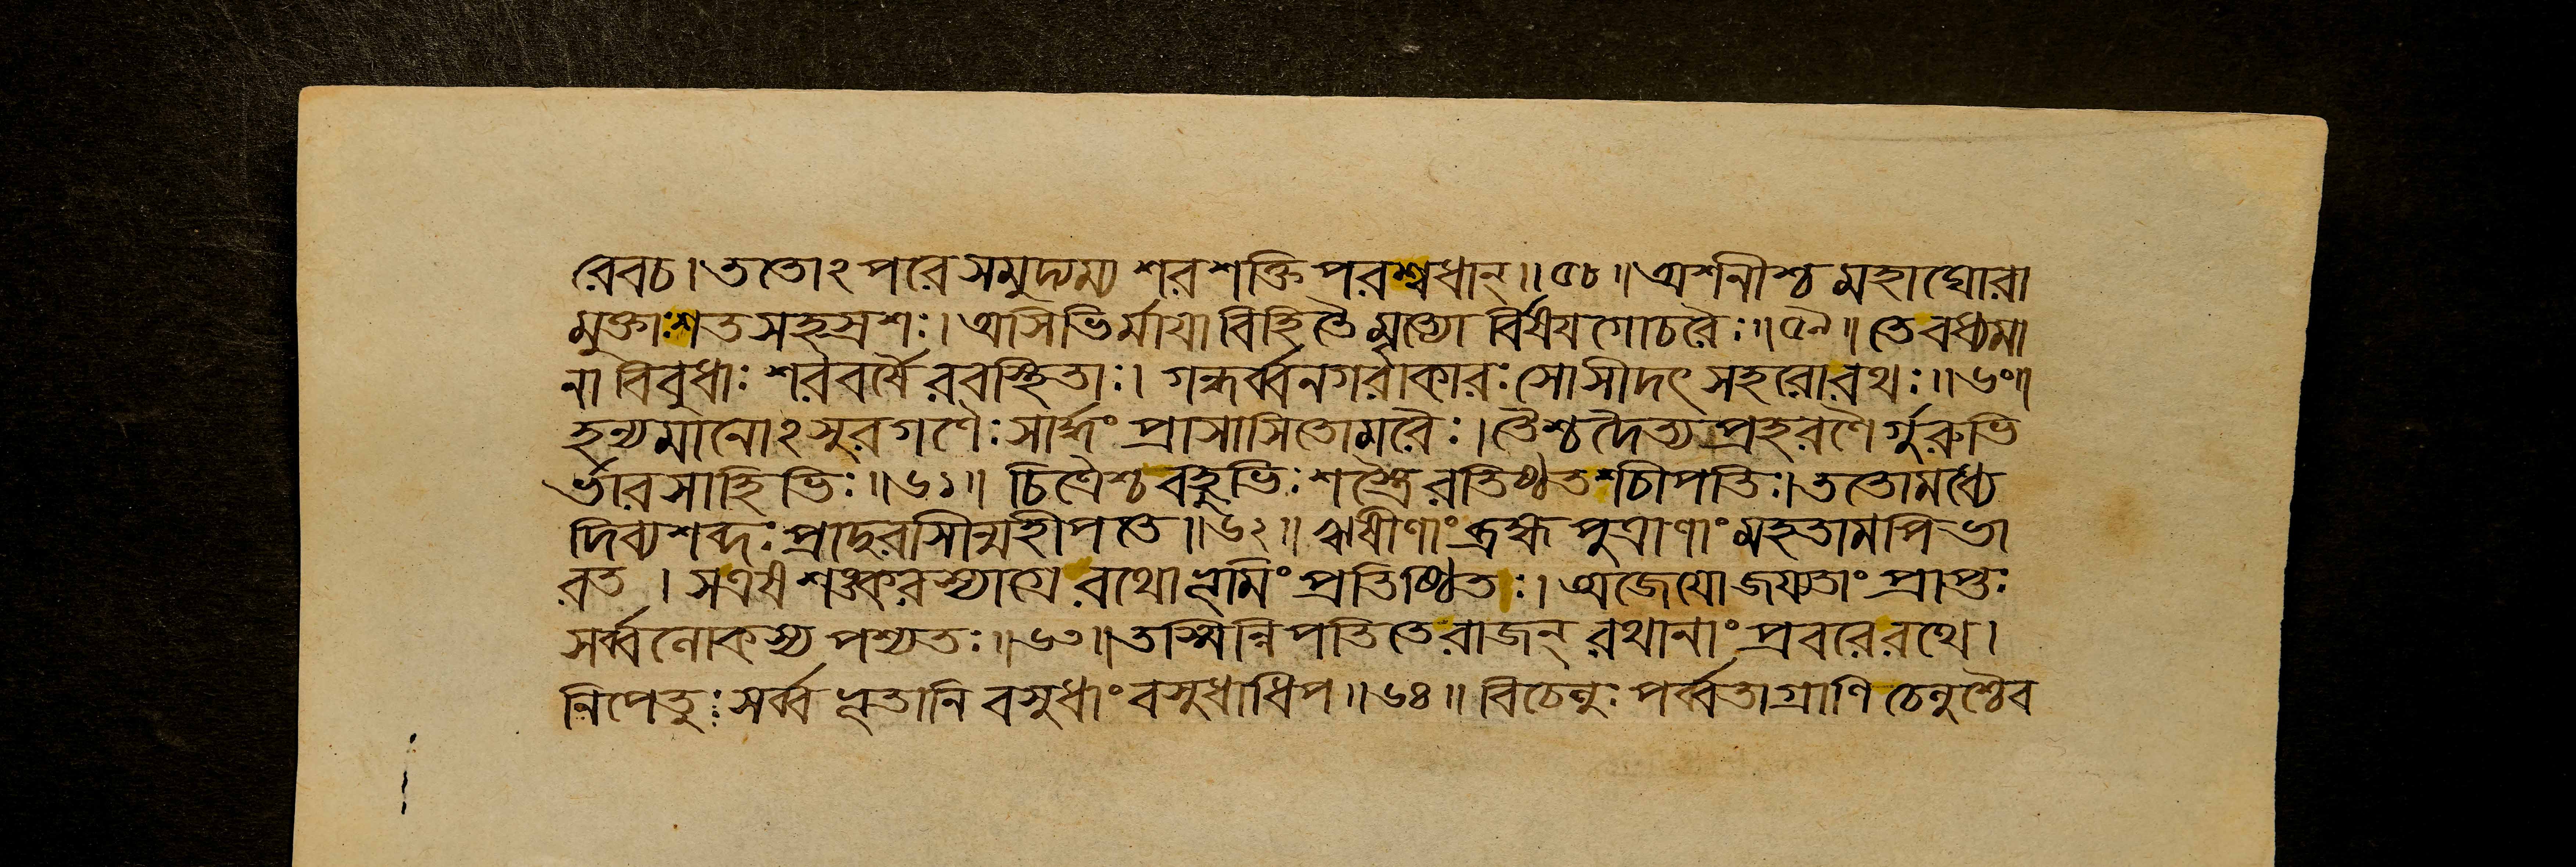 রেবচ। ততোঽপরে সমুদ্যম্য শরশক্তিপরশ্বধান্॥ ৫৮॥ অশনীশ্চ মহাঘোরা
মুক্তাঃ শতসহস্রশঃ। অসিভির্মায়াবিহিতৈর্মৃত্যো র্বিষয়গোচরৈঃ॥ ৫৯॥ তে বধ্যমা
না বিবুধাঃ শরবর্ষৈ রবস্থিতাঃ। গন্ধর্ব্বনগরাকারঃ সোসীদৎ সহরো রথঃ॥ ৬০॥
হন্যমানোঽসুরগণৈঃ সার্দ্ধং প্রাসাসিতোমরৈঃ। তৈশ্চ দৈত্য প্রহরণৈ র্গুরুভি
র্ভারসাহিভিঃ॥ ৬১॥ চিত্রৈশ্চ বহুভিঃ শস্ত্রৈ রতিষ্ঠত শচীপতিঃ। ততো মধ্যে
দিব্যশব্দঃ প্রাদুরসীন্মহীপতে॥ ৬২॥ ঋষীণাং ব্রহ্মপুত্রাণাং মহতামপি ভা
রত । স এষ শঙ্করস্যাগ্রে রথো ভূমিং প্রতিষ্ঠিতঃ। অজেয়ো জয্যতাং প্রাপ্তঃ
সর্ব্বলোকস্য পশ্যতঃ॥ ৬৩॥ তস্মিন্নিপতিতে রাজন্ রথানাং প্রবরে রথে।
নিপেতুঃ সর্ব্বভূতানি বসুধাং বসুধাধিপ॥ ৬৪॥ বিচেলুঃ পর্ব্বতাগ্রাণি চেলুশ্চৈব